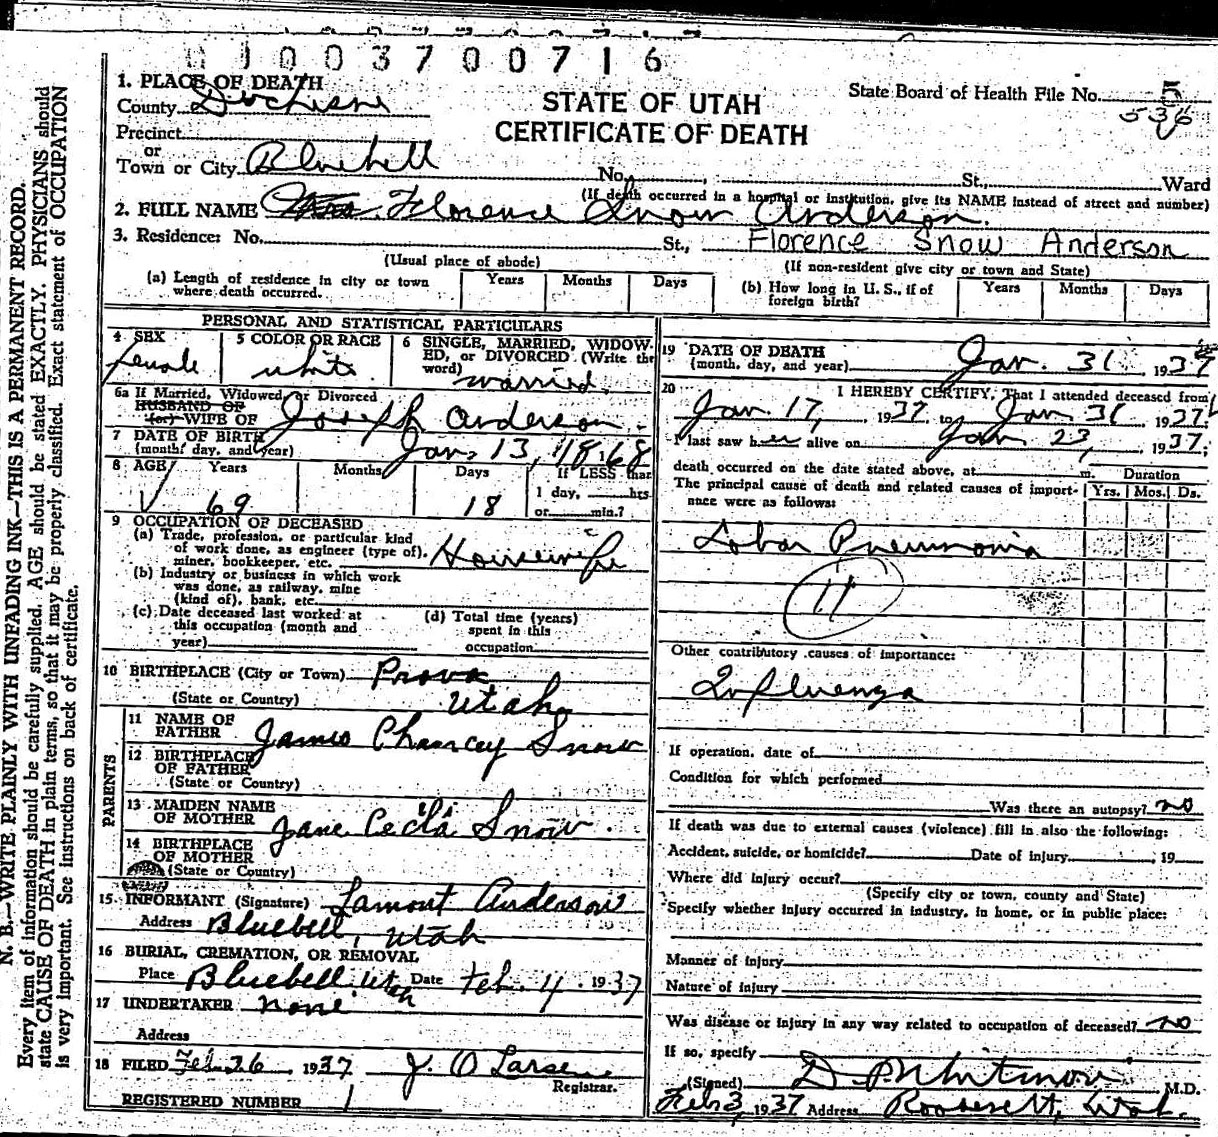 01003700716
1. PLACE OF DEATH
County Duchesne
STATE OF UTAH
CERTIFICATE OF DEATH
State Board of Health File No. 5
536
Precinct
or
Town or City Bluebell No. , St., Ward
(If death occurred in a hospital or institution, give its NAME instead of street and number)
2. FULL NAME Florence Snow Anderson.
3. Residence: No. St., Florence Snow Anderson
(Usual place of abode) (If non-resident give city or town and State)
(a) Length of residence in city or town where death occurred. Years Months Days
(b) How long in U. S., if of foreign birth? Years Months Days
PERSONAL AND STATISTICAL PARTICULARS
4 SEX female
5 COLOR OR RACE white
6 SINGLE, MARRIED, WIDOWED, or DIVORCED (Write the word) married
6a If Married, Widowed, or Divorced
HUSBAND OF
(or) WIFE OF Joseph Anderson
7 DATE OF BIRTH
(month, day, and year) Jan. 13, 1868
8 AGE Years Months Days If LESS than
69 18 1 day, hrs.
or min.?
9 OCCUPATION OF DECEASED
(a) Trade, profession, or particular kind of work done, as engineer (type of), miner, bookkeeper, etc. Housewife
(b) Industry or business in which work was done, as railway, mine (kind of), bank, etc.
(c) Date deceased last worked at this occupation (month and year)
(d) Total time (years) spent in this occupation
10 BIRTHPLACE (City or Town) Provo
(State or Country) Utah
PARENTS
11 NAME OF FATHER James Chancey Snow
12 BIRTHPLACE OF FATHER
(State or Country)
13 MAIDEN NAME OF MOTHER Jane Cecla Snow.
14 BIRTHPLACE OF MOTHER
(State or Country)
15 INFORMANT (Signature) Lamont Anderson
Address Bluebell, Utah
16 BURIAL, CREMATION, OR REMOVAL
Place Bluebell Utah Date Feb. 4. 1937
17 UNDERTAKER none
Address
18 FILED Feb. 26, 1937 J. O Larsen
Registrar.
REGISTERED NUMBER 1
19 DATE OF DEATH
(month, day, and year) Jan. 31, 1937
20 I HEREBY CERTIFY, That I attended deceased from
Jan 17, 1937, to Jan 31 1937
I last saw her alive on Jan 23, 1937;
death occurred on the date stated above, at m. Duration
The principal cause of death and related causes of importance were as follows: Yrs. Mos. Ds.
Lobar Pneumonia
11
Other contributory causes of importance:
Influenza
If operation, date of
Condition for which performed
Was there an autopsy? no
If death was due to external causes (violence) fill in also the following:
Accident, suicide, or homicide? Date of injury , 19
Where did injury occur?
(Specify city or town, county and State)
Specify whether injury occurred in industry, in home, or in public place:
Manner of injury
Nature of injury
Was disease or injury in any way related to occupation of deceased? no
If so, specify
(Signed) M.D.
Feb 3, 1937 Address Roosevelt, Utah.
N. B.—WRITE PLAINLY WITH UNFADING INK—THIS IS A PERMANENT RECORD.
Every item of information should be carefully supplied. AGE should be stated EXACTLY. PHYSICIANS should
state CAUSE OF DEATH in plain terms, so that it may be properly classified. Exact statement of OCCUPATION
is very important. See instructions on back of certificate.